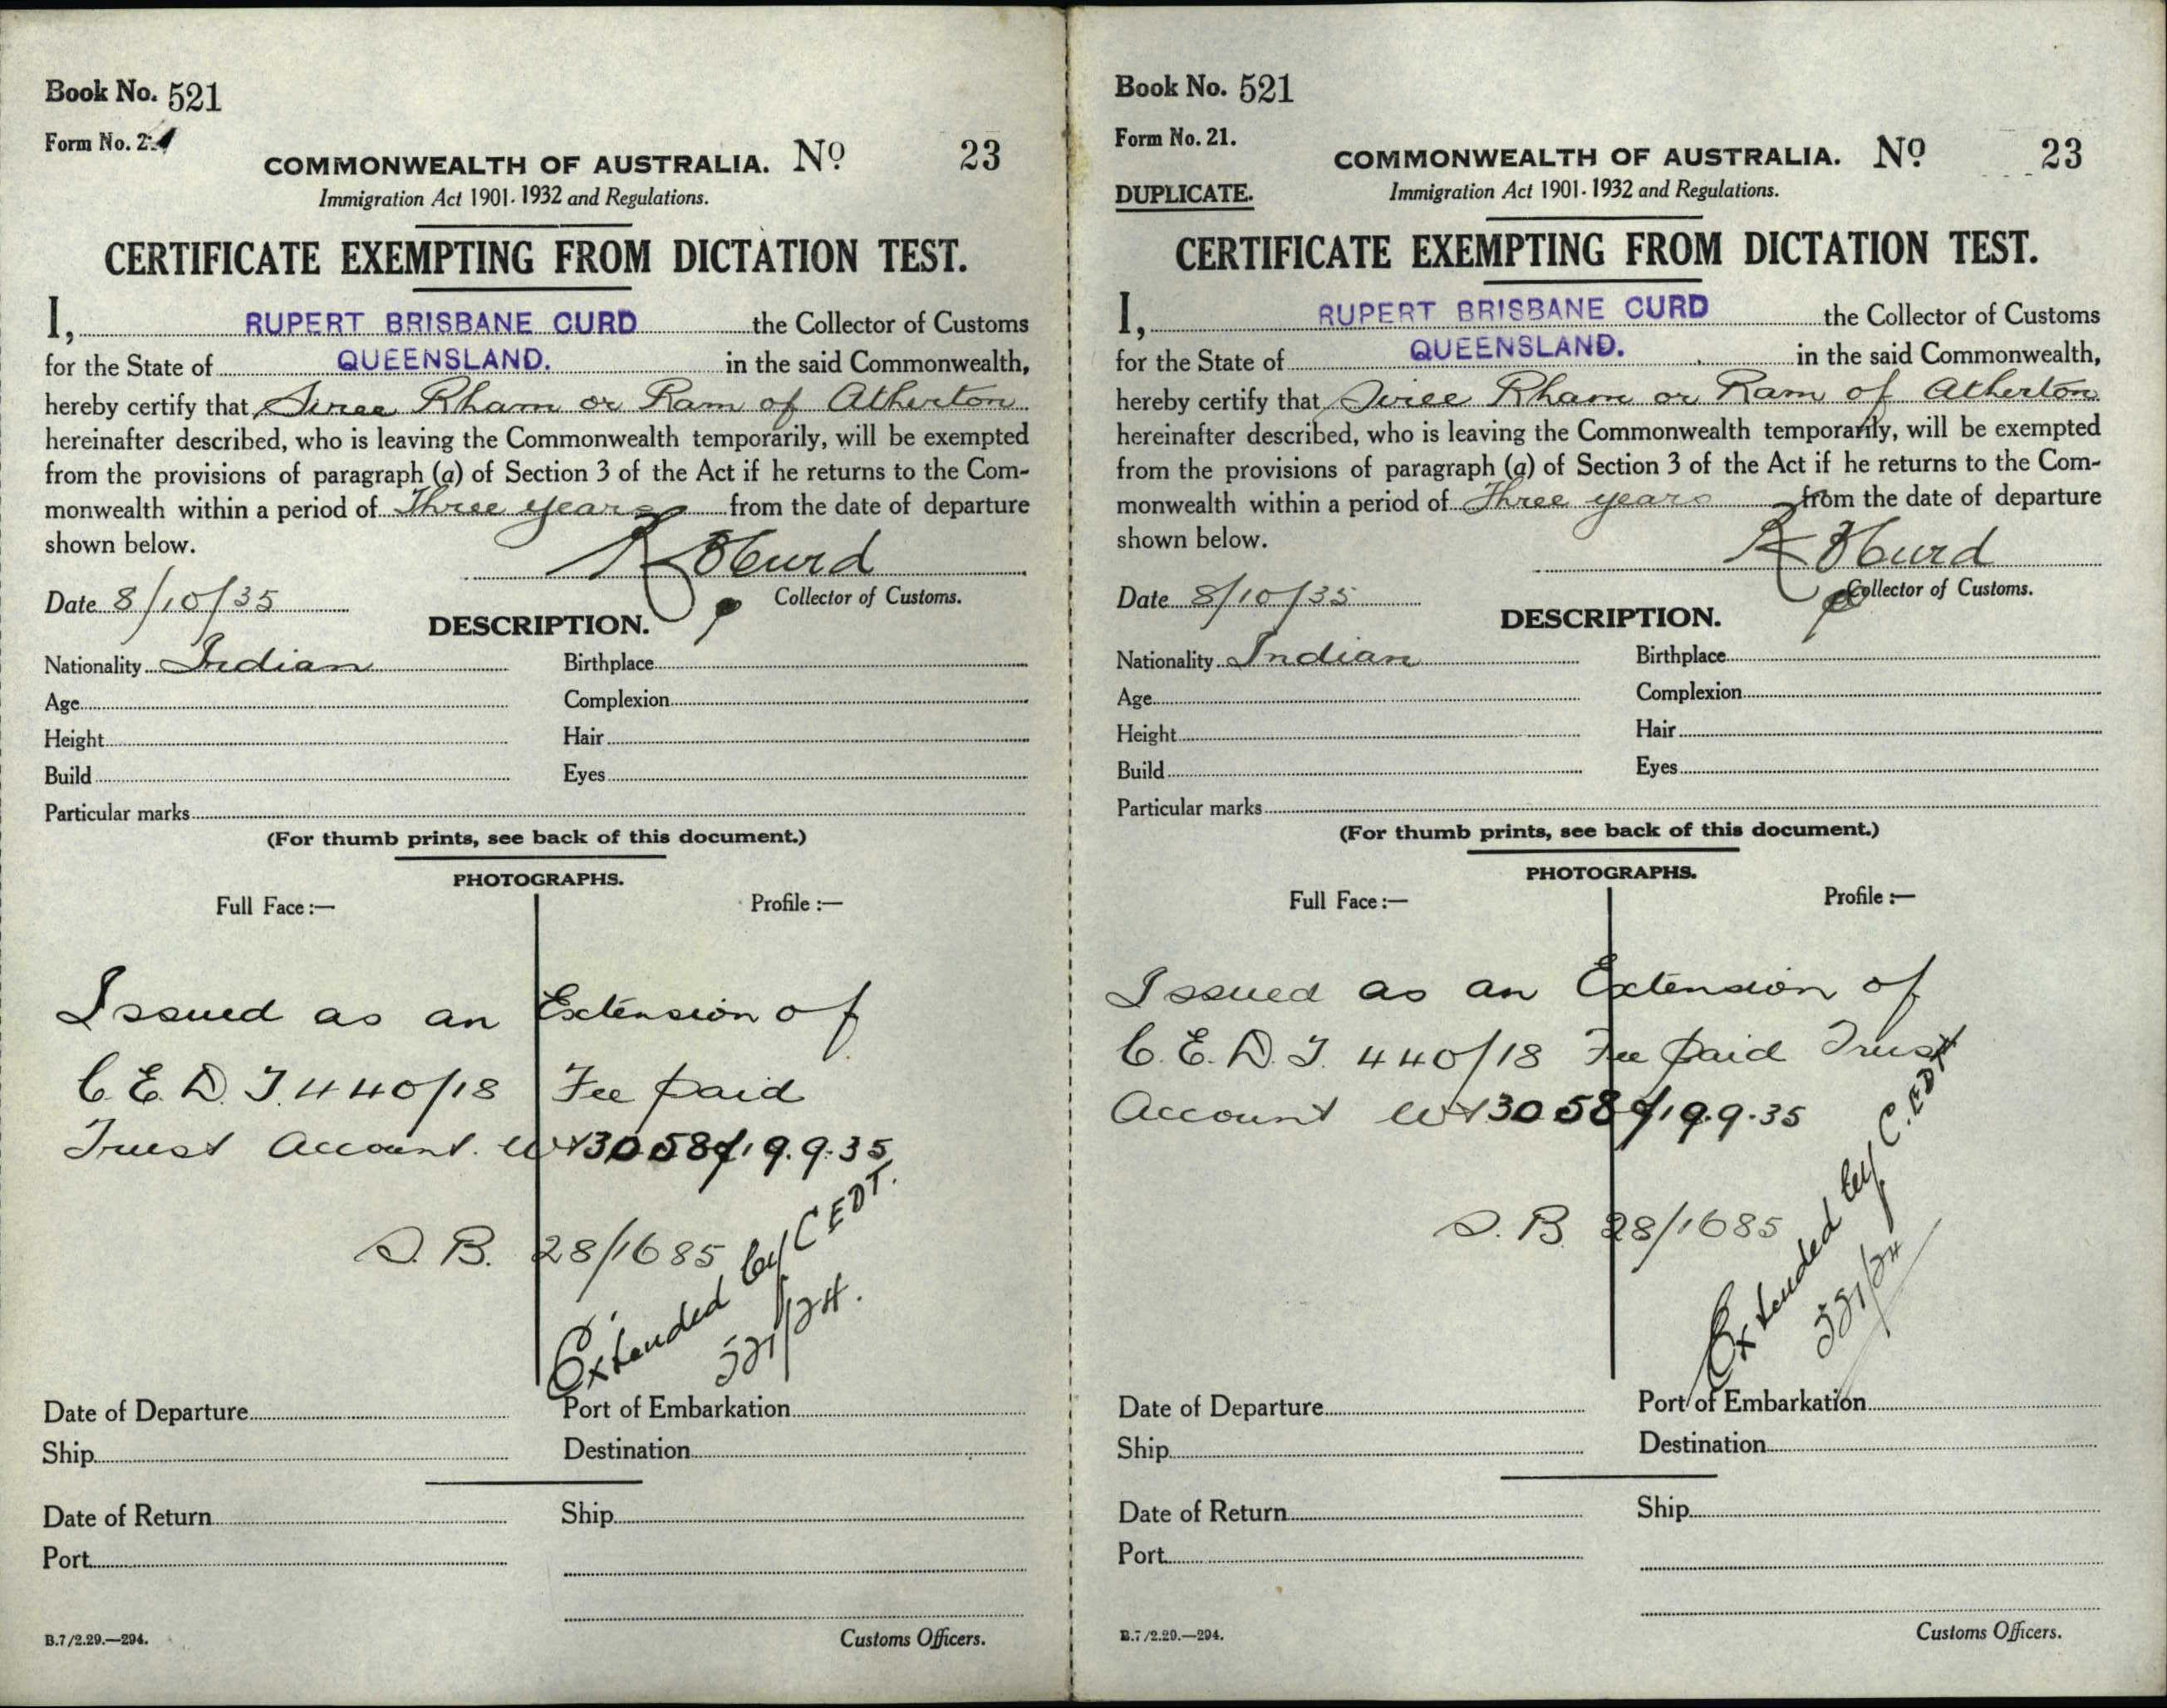 Book No. 521
Form No. 21
COMMONWEALTH OF AUSTRALIA. No 23
Immigration Act 1901-1932 and Regulations.
CERTIFICATE EXEMPTING FROM DICTATION TEST.
I, RUPERT BRISBANE CURD the Collector of Customs
for the State of QUEENSLAND. in the said Commonwealth,
hereby certify that Siree Rham or Ram of Atherton
hereinafter described, who is leaving the Commonwealth temporarily, will be exempted
from the provisions of paragraph (a) of Section 3 of the Act if he returns to the Com-
monwealth within a period of Three years from the date of departure
shown below.
R B Curd
Date 8/10/35 Collector of Customs.
DESCRIPTION.
Nationality Indian Birthplace
Age Complexion
Height Hair
Build Eyes
Particular marks
(For thumb prints, see back of this document.)
PHOTOGRAPHS.
Full Face:— Profile:—
Issued as an Extension of
C.E.D.T. 440/18 Fee paid
Trust Account 3058 of 19.9.35
S.B. 28/1685
Extended by CEDT.
521/24.
Date of Departure Port of Embarkation
Ship Destination
Date of Return Ship
Port
B.7/2.29.—294. Customs Officers.
Book No. 521
Form No. 21.
COMMONWEALTH OF AUSTRALIA. No 23
DUPLICATE. Immigration Act 1901-1932 and Regulations.
CERTIFICATE EXEMPTING FROM DICTATION TEST.
I, RUPERT BRISBANE CURD the Collector of Customs
for the State of QUEENSLAND. in the said Commonwealth,
hereby certify that Siree Rham or Ram of Atherton
hereinafter described, who is leaving the Commonwealth temporarily, will be exempted
from the provisions of paragraph (a) of Section 3 of the Act if he returns to the Com-
monwealth within a period of Three years from the date of departure
shown below.
R B Curd
Date 8/10/35 Collector of Customs.
DESCRIPTION.
Nationality Indian Birthplace
Age Complexion
Height Hair
Build Eyes
Particular marks
(For thumb prints, see back of this document.)
PHOTOGRAPHS.
Full Face:— Profile:—
Issued as an Extension of
C.E.D.T. 440/18 Fee paid Trust
Account 3058 of 19.9.35
S.B. 28/1685
Extended by C.EDT
521/24
Date of Departure Port of Embarkation
Ship Destination
Date of Return Ship
Port
B.7/2.29.—294. Customs Officers.